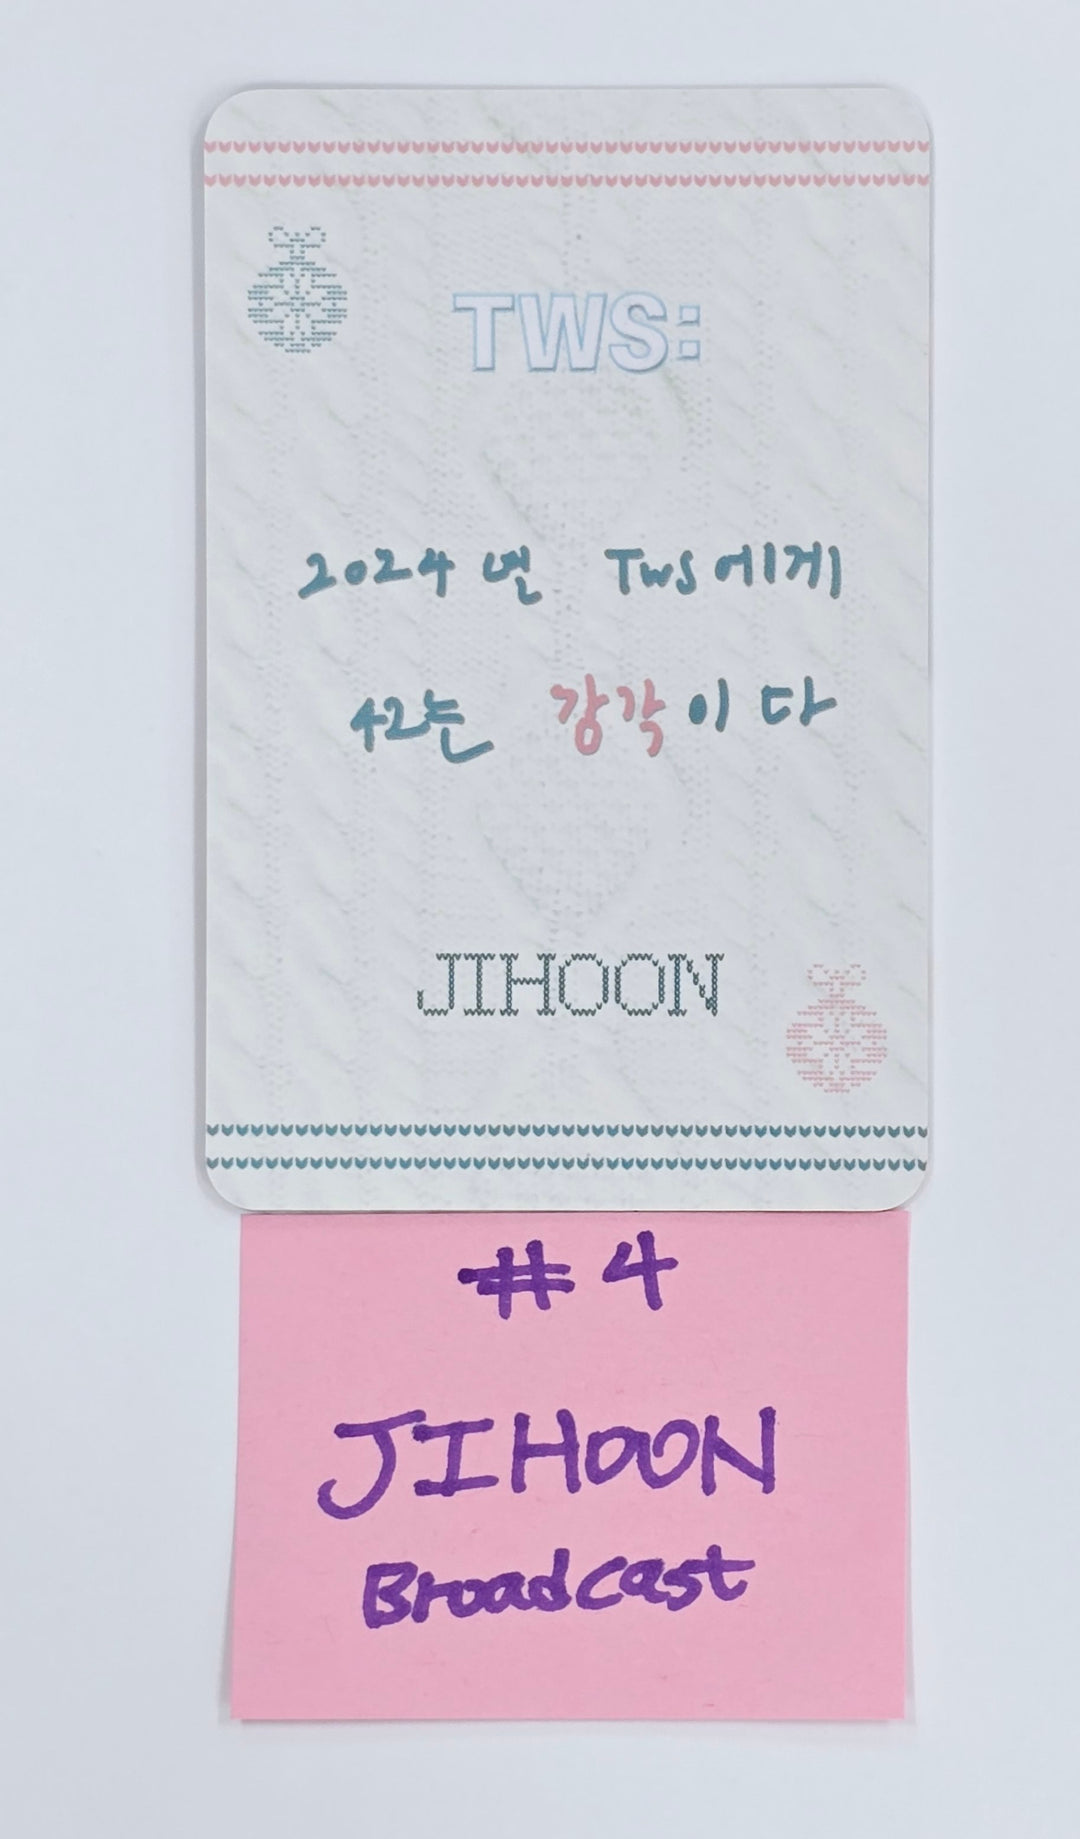 TWS:
2024년 TWS에게
42는 강각이다
JIHOON
#4
JIHOON
Broadcast